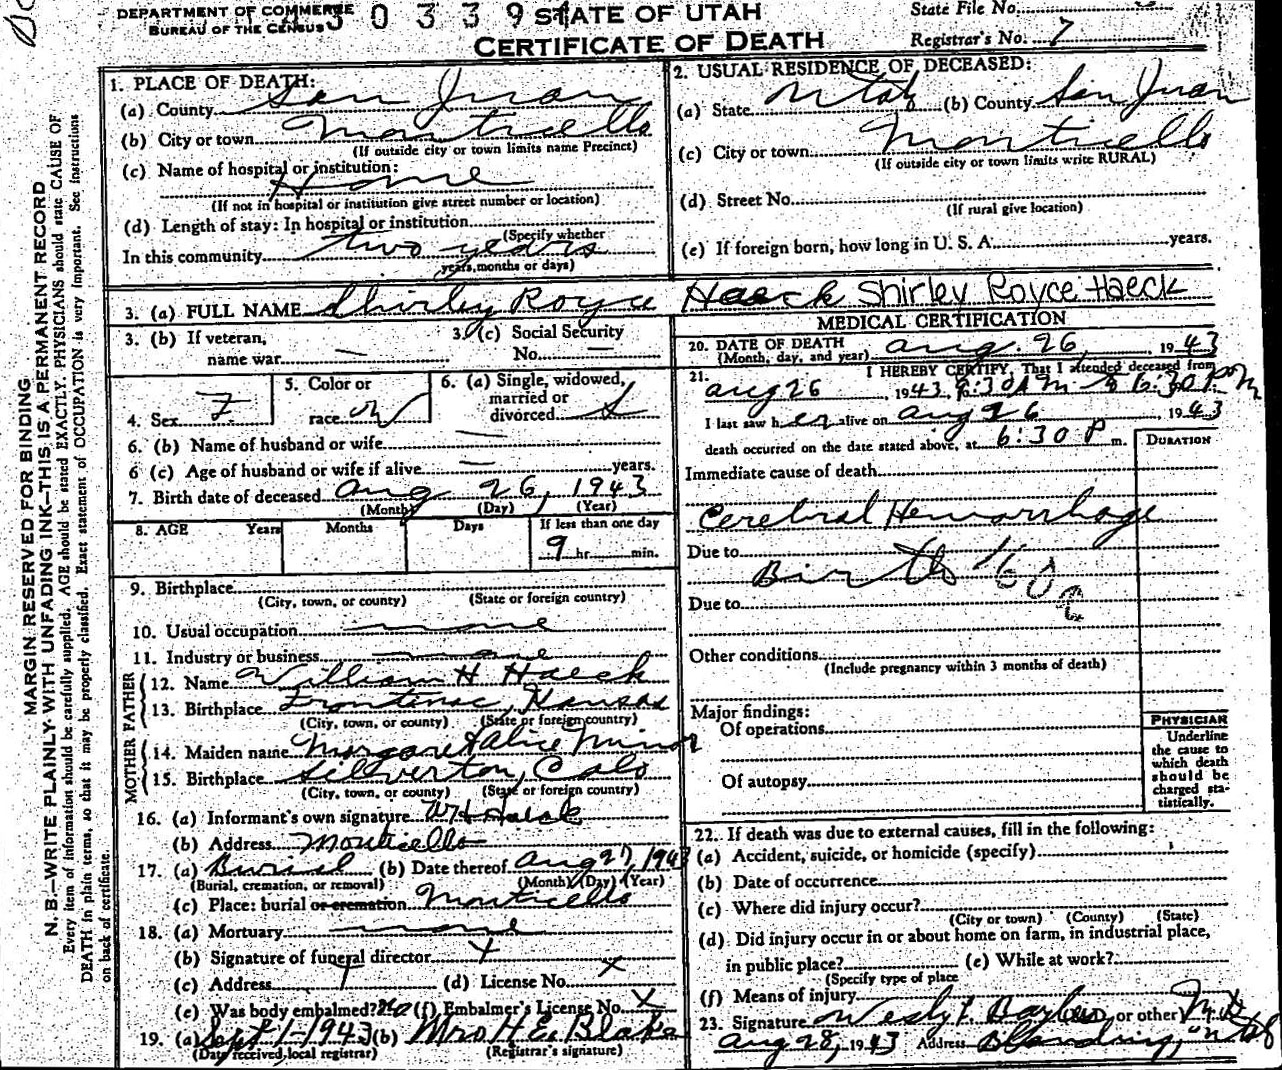 DEPARTMENT OF COMMERCE
BUREAU OF THE CENSUS
3 0 3 3 9
STATE OF UTAH
CERTIFICATE OF DEATH
State File No.
Registrar's No. 7
MARGIN RESERVED FOR BINDING
N. B.—WRITE PLAINLY-WITH UNFADING INK—THIS IS A PERMANENT RECORD
Every item of information should be carefully supplied. AGE should be stated EXACTLY. PHYSICIANS should state CAUSE OF
DEATH in plain terms, so that it may be properly classified. Exact statement of OCCUPATION is very important. See instructions
on back of certificate.
1. PLACE OF DEATH:
(a) County San Juan
(b) City or town Monticello
(If outside city or town limits name Precinct)
(c) Name of hospital or institution:
Home
(If not in hospital or institution give street number or location)
(d) Length of stay: In hospital or institution
(Specify whether
In this community two years
years, months or days)
2. USUAL RESIDENCE OF DECEASED:
(a) State Utah (b) County San Juan
(c) City or town Monticello
(If outside city or town limits write RURAL)
(d) Street No.
(If rural give location)
(e) If foreign born, how long in U. S. A. years.
3. (a) FULL NAME Shirley Royce Haeck Shirley Royce Haeck
3. (b) If veteran, name war —
3. (c) Social Security No. —
4. Sex F
5. Color or race W
6. (a) Single, widowed, married or divorced
6. (b) Name of husband or wife —
6 (c) Age of husband or wife if alive — years.
7. Birth date of deceased Aug 26, 1943
(Month) (Day) (Year)
8. AGE Years Months Days If less than one day
9 hr. min.
9. Birthplace
(City, town, or county) (State or foreign country)
10. Usual occupation none
11. Industry or business none
FATHER
12. Name William H Haeck
13. Birthplace Frontenac, Kansas
(City, town, or county) (State or foreign country)
MOTHER
14. Maiden name Margaret Alice Minor
15. Birthplace Silverton, Colo
(City, town, or county) (State or foreign country)
16. (a) Informant's own signature WH Haeck
(b) Address Monticello
17. (a) Burial (b) Date thereof Aug 27, 1943
(Burial, cremation, or removal) (Month) (Day) (Year)
(c) Place: burial or cremation Monticello
18. (a) Mortuary none
(b) Signature of funeral director x
(c) Address (d) License No. x
(e) Was body embalmed? No (f) Embalmer's License No. x
19. (a) Sept 1-1943 (b) Mrs H E. Blake
(Date received local registrar) (Registrar's signature)
MEDICAL CERTIFICATION
20. DATE OF DEATH
(Month, day, and year) Aug. 26, 1943
21. I HEREBY CERTIFY, That I attended deceased from
Aug 26, 1943, 9:30 A m 6:30 P. M
I last saw her alive on Aug 26, 1943
death occurred on the date stated above, at 6:30 P m.
DURATION
Immediate cause of death
Cerebral Hemorrhage
Due to
Birth 160a
Due to
Other conditions
(Include pregnancy within 3 months of death)
Major findings:
Of operations
Of autopsy
PHYSICIAN
Underline
the cause to
which death
should be
charged sta-
tistically.
22. If death was due to external causes, fill in the following:
(a) Accident, suicide, or homicide (specify)
(b) Date of occurrence
(c) Where did injury occur?
(City or town) (County) (State)
(d) Did injury occur in or about home on farm, in industrial place,
in public place? (e) While at work?
(Specify type of place
(f) Means of injury
23. Signature or other
Aug 28, 1943 Address Blanding, Utah